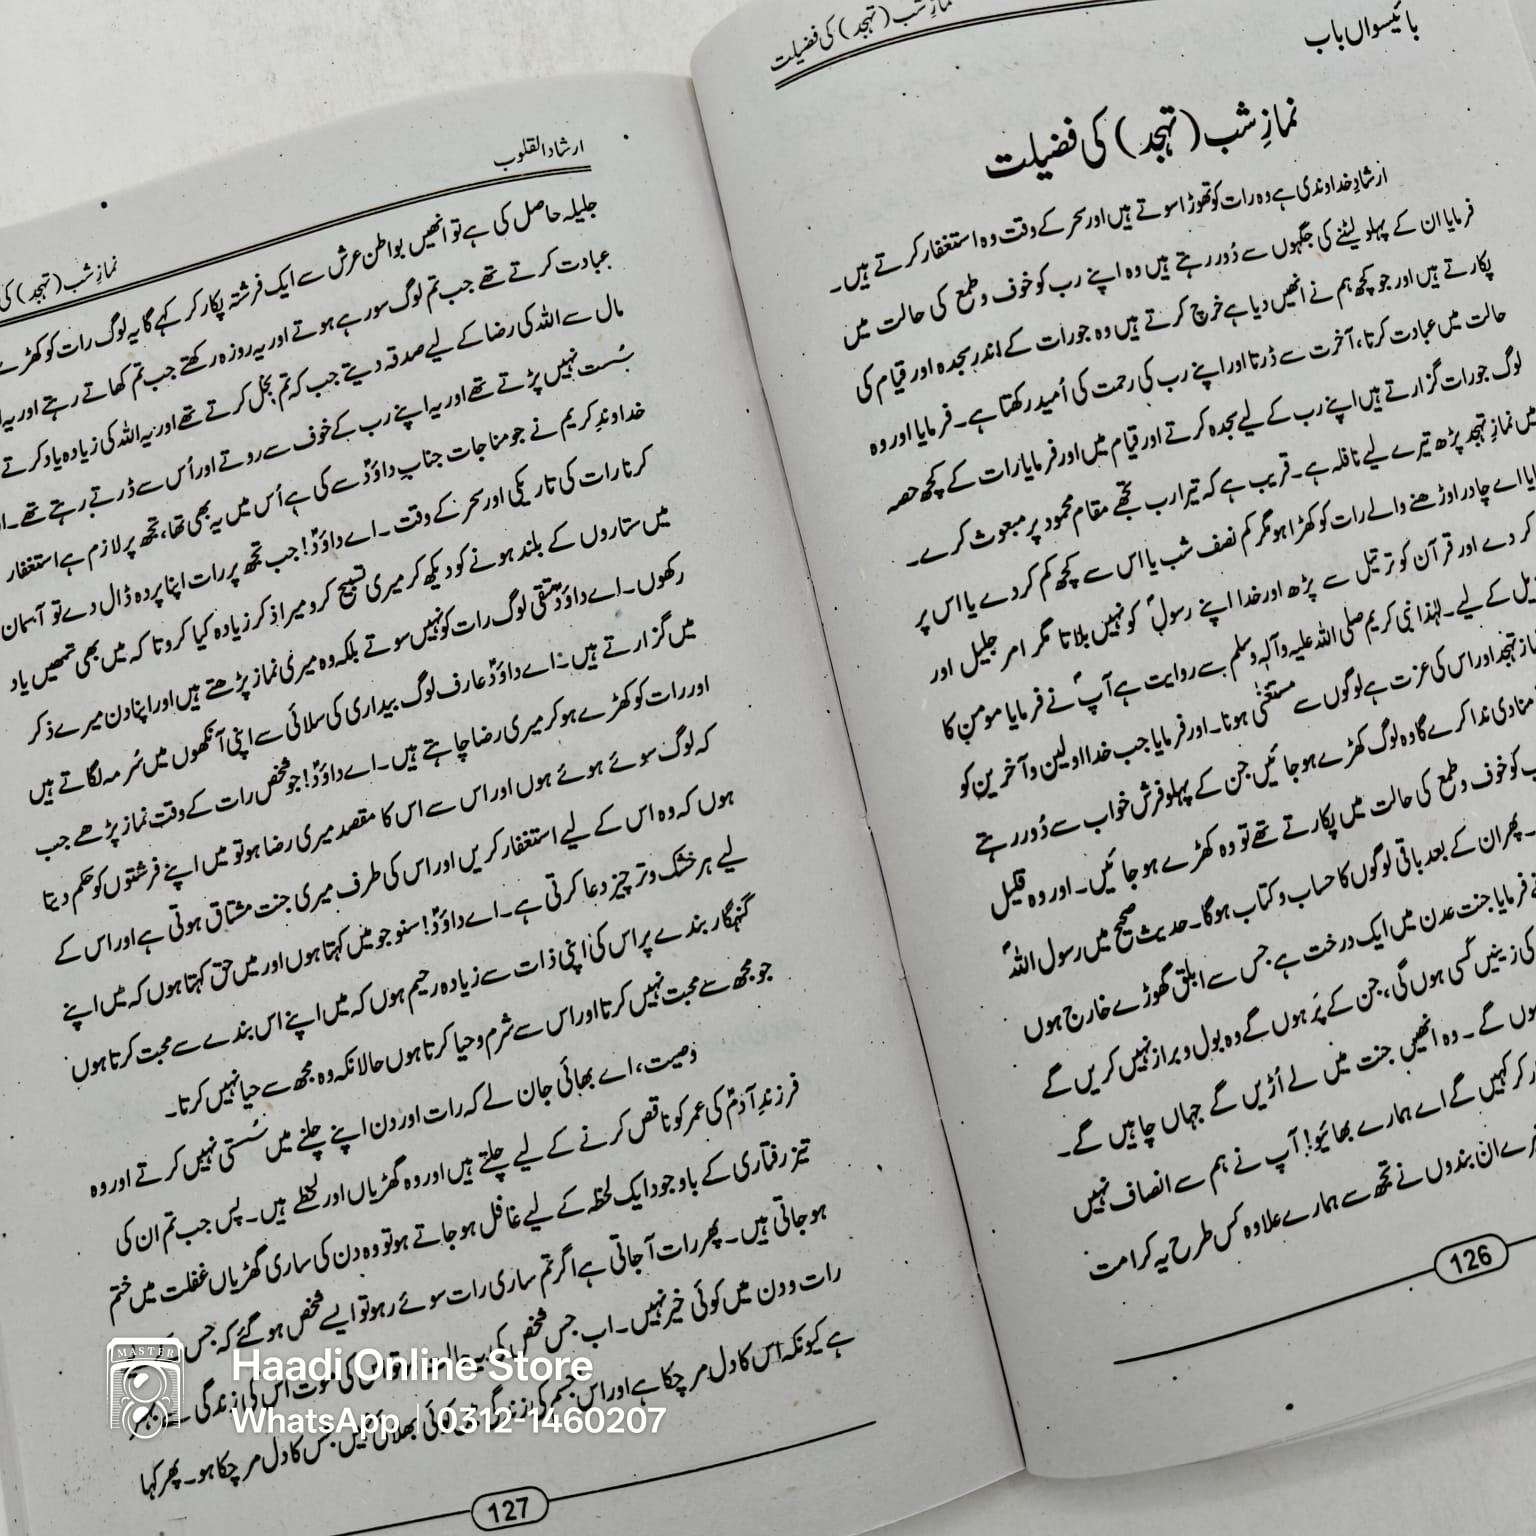 نمازِ شب (تہجد) کی فضیلت
بائیسواں باب
نمازِ شب (تہجد) کی فضیلت
ارشادِ خداوندی ہے وہ رات کو تھوڑا سوتے ہیں اور سحر کے وقت وہ استغفار کرتے ہیں۔
فرمایا ان کے پہلو لیٹنے کی جگہوں سے دُور رہتے ہیں وہ اپنے رب کو خوف و طمع کی حالت میں
پکارتے ہیں اور جو کچھ ہم نے انھیں دیا ہے خرچ کرتے ہیں وہ جو رات کے اندر سجدہ اور قیام کی
حالت میں عبادت کرتا، آخرت سے ڈرتا اور اپنے رب کی رحمت کی اُمید رکھتا ہے۔ فرمایا اور وہ
لوگ جو رات گزارتے ہیں اپنے رب کے لیے سجدہ کرتے اور قیام میں اور فرمایا رات کے کچھ حصہ
میں نمازِ تہجد پڑھ تیرے لیے نافلہ ہے۔ قریب ہے کہ تیرا رب تجھے مقام محمود پر مبعوث کرے۔
اے چادر اوڑھنے والے رات کو کھڑا ہو مگر کم نصف شب یا اس سے کچھ کم کر دے یا اس پر
کر دے اور قرآن کو ترتیل سے پڑھ اور خدا اپنے رسولؐ کو نہیں بلاتا مگر امر جلیل اور
کے لیے۔ لہٰذا نبی کریم صلی اللہ علیہ وآلہٖ وسلم سے روایت ہے آپؐ نے فرمایا مومن کا
تہجد اور اس کی عزت ہے لوگوں سے مستغنیٰ ہونا۔ اور فرمایا جب خدا اولین و آخرین کو
منادی ندا کرے گا وہ لوگ کھڑے ہو جائیں جن کے پہلو فرش خواب سے دُور رہتے
کو خوف و طمع کی حالت میں پکارتے تھے تو وہ کھڑے ہو جائیں۔ اور وہ قلیل
۔ پھر ان کے بعد باقی لوگوں کا حساب و کتاب ہوگا۔ حدیث صحیح میں رسول اللہؐ
نے فرمایا جنت عدن میں ایک درخت ہے جس سے ابلق گھوڑے خارج ہوں
کی زینیں کَسی ہوں گی، جن کے پَر ہوں گے وہ بول و براز نہیں کریں گے
ہوں گے۔ وہ انھیں جنت میں لے اُڑیں گے جہاں چاہیں گے۔
کر کہیں گے اے ہمارے بھائیو! آپ نے ہم سے انصاف نہیں
ان بندوں نے تجھ سے ہمارے علاوہ کس طرح یہ کرامت
126
ارشاد القلوب
نمازِ شب (تہجد) کی
جلیلہ حاصل کی ہے تو انھیں بواطن عرش سے ایک فرشتہ پکار کر کہے گا یہ لوگ رات کو کھڑے
عبادت کرتے تھے جب تم لوگ سو رہے ہوتے اور یہ روزہ رکھتے جب تم کھاتے رہتے اور یہ
مال سے اللہ کی رضا کے لیے صدقہ دیتے جب کہ تم بخل کرتے تھے اور یہ اللہ کی زیادہ یاد کرتے
سُست نہیں پڑتے تھے اور یہ اپنے رب کے خوف سے روتے اور اُس سے ڈرتے رہتے تھے۔
خداوندِ کریم نے جو مناجات جنابِ داوٗدؑ سے کی ہے اُس میں یہ بھی تھا، تجھ پر لازم ہے استغفار
کرنا رات کی تاریکی اور سحر کے وقت۔ اے داوٗدؑ! جب تجھ پر رات اپنا پردہ ڈال دے تو آسمان
میں ستاروں کے بلند ہونے کو دیکھ کر میری تسبیح کرو میرا ذکر زیادہ کیا کرو تا کہ میں بھی تمھیں یاد
رکھوں۔ اے داوٗدؑ متقی لوگ رات کو نہیں سوتے بلکہ وہ میری نماز پڑھتے ہیں اور اپنا دن میرے ذکر
میں گزارتے ہیں۔ اے داوٗدؑ عارف لوگ بیداری کی سلائی سے اپنی آنکھوں میں سُرمہ لگاتے ہیں
اور رات کو کھڑے ہو کر میری رضا چاہتے ہیں۔ اے داوٗدؑ! جو شخص رات کے وقت نماز پڑھے جب
کہ لوگ سوئے ہوئے ہوں اور اس سے اس کا مقصد میری رضا ہو تو میں اپنے فرشتوں کو حکم دیتا
ہوں کہ وہ اس کے لیے استغفار کریں اور اس کی طرف میری جنت مشتاق ہوتی ہے اور اس کے
لیے ہر خشک و تر چیز دعا کرتی ہے۔ اے داوٗدؑ! سنو جو میں کہتا ہوں اور میں حق کہتا ہوں کہ میں اپنے
گنہگار بندے پر اس کی اپنی ذات سے زیادہ رحیم ہوں کہ میں اپنے اس بندے سے محبت کرتا ہوں
جو مجھ سے محبت نہیں کرتا اور اس سے شرم و حیا کرتا ہوں حالانکہ وہ مجھ سے حیا نہیں کرتا۔
وصیت، اے بھائی جان لے کہ رات اور دن اپنے چلنے میں سُستی نہیں کرتے اور وہ
فرزندِ آدمؑ کی عمر کو ناقص کرنے کے لیے چلتے ہیں اور وہ گھڑیاں اور لحظے ہیں۔ پس جب تم ان کی
تیز رفتاری کے باوجود ایک لحظہ کے لیے غافل ہو جاتے ہو تو وہ دن کی ساری گھڑیاں غفلت میں ختم
ہو جاتی ہیں۔ پھر رات آ جاتی ہے اگر تم ساری رات سوئے رہو تو ایسے شخص ہو گئے کہ جس
رات و دن میں کوئی خیر نہیں۔ اب جس شخص کی یہ حالت ہو تو اس کی موت اس کی زندگی سے بہتر
ہے کیونکہ اس کا دل مر چکا ہے اور اس جسم کی زندگی میں کوئی بھلائی نہیں جس کا دل مر چکا ہو۔ پھر کہا
127
MASTER
Haadi Online Store
WhatsApp | 0312-1460207